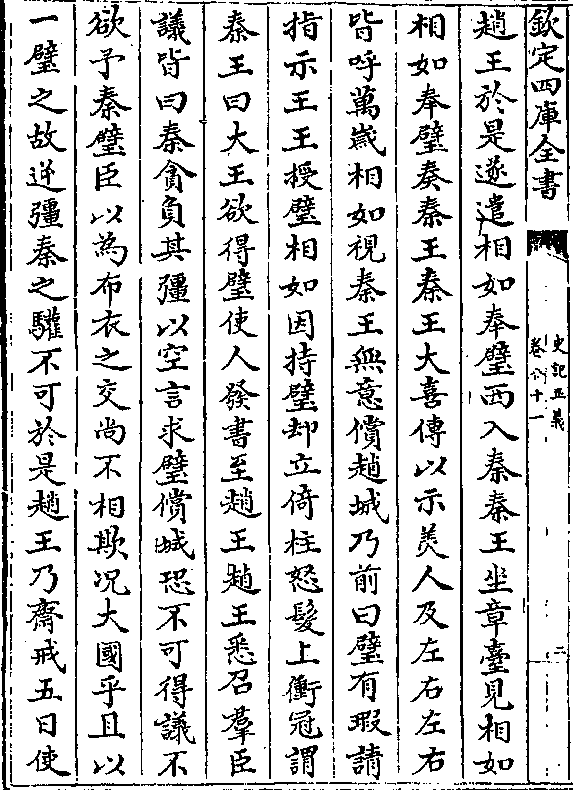 欽定四庫全書
史記正義
卷八十一
二
趙王於是遂遣相如奉璧西入秦秦王坐章臺見相如
相如奉璧奏秦王秦王大喜傳以示美人及左右左右
皆呼萬歲相如視秦王無意償趙城乃前曰璧有瑕請
指示王王授璧相如因持璧却立倚柱怒髮上衝冠謂
秦王曰大王欲得璧使人發書至趙王趙王悉召羣臣
議皆曰秦貪負其彊以空言求璧償城恐不可得議不
欲予秦璧臣以為布衣之交尚不相欺况大國乎且以
一璧之故逆彊秦之驩不可於是趙王乃齋戒五日使